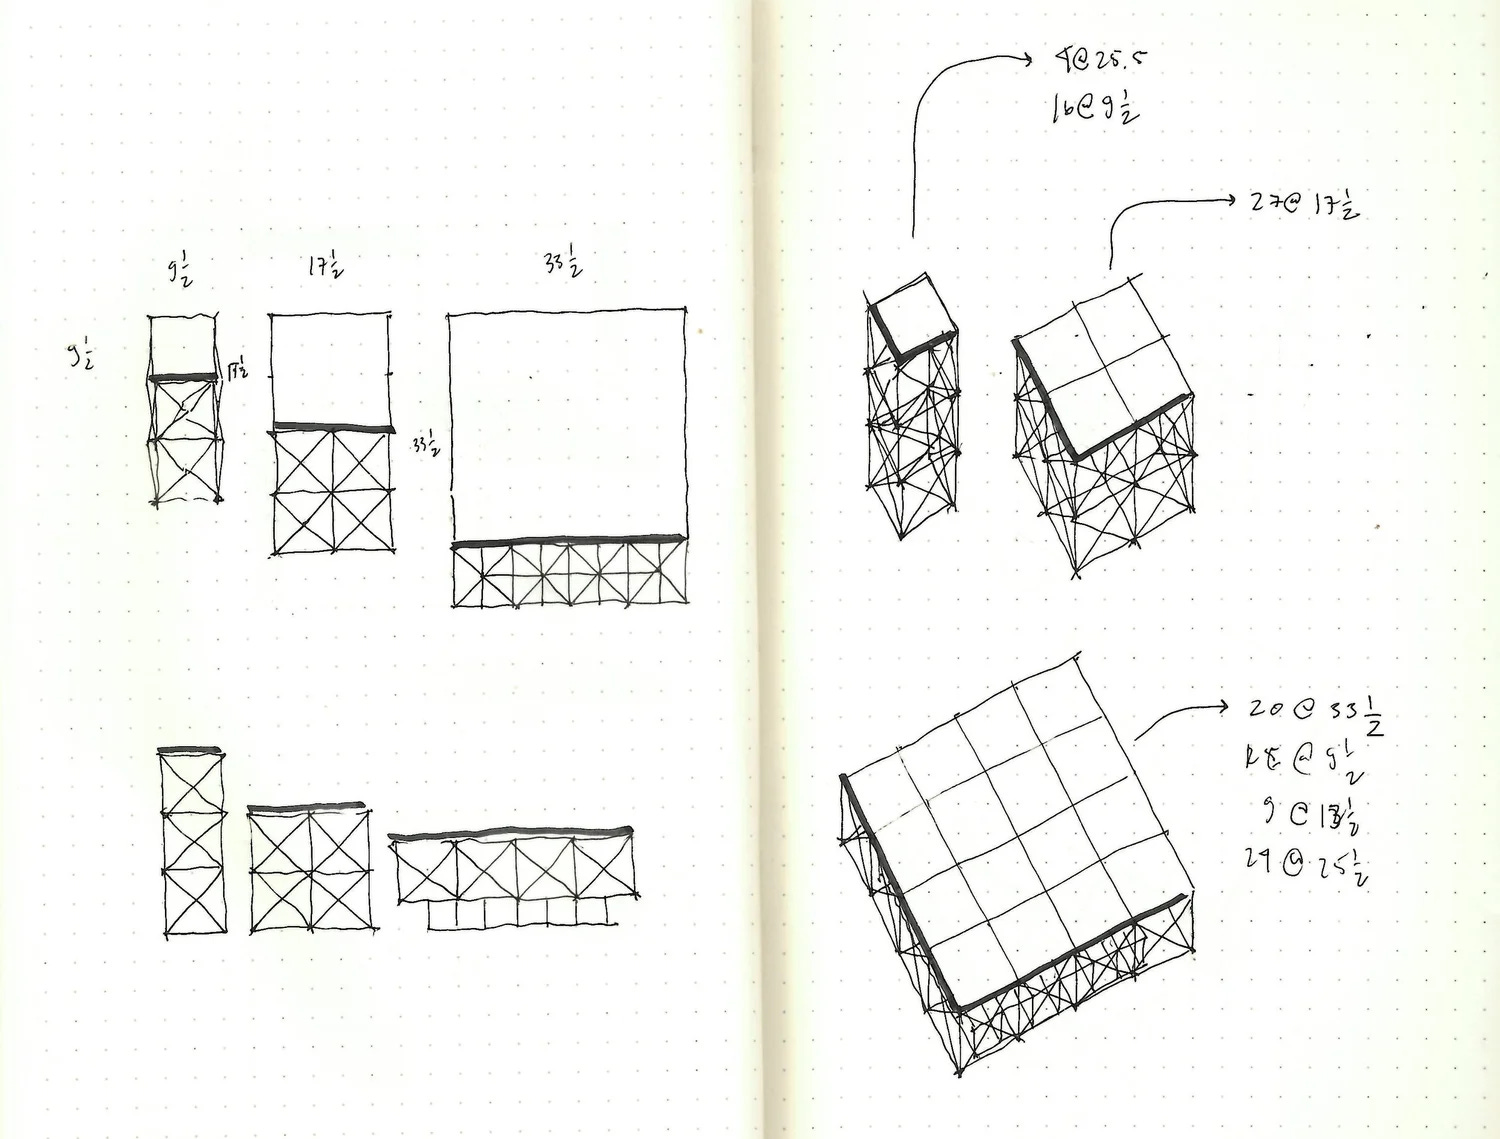 9 1/2
17 1/2
33 1/2
9 1/2
33 1/2
@ 25.5
16 @ 9 1/2
27 @ 17 1/2
20 @ 33 1/2
@ 9 1/2
9 @ 1/2
@ 25 1/2